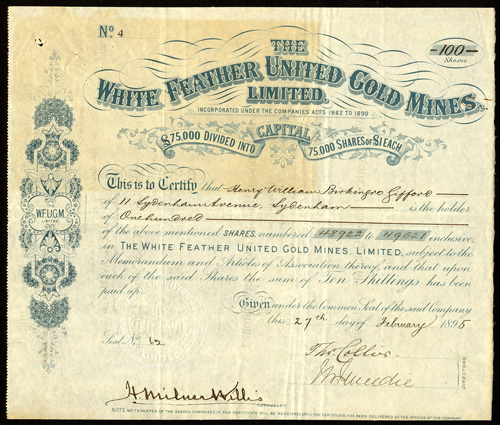 No. 4
-100-
Shares
THE
WHITE FEATHER UNITED GOLD MINES,
LIMITED.
INCORPORATED UNDER THE COMPANIES ACTS 1862 TO 1890
CAPITAL
£75,000 DIVIDED INTO 75,000 SHARES OF £1 EACH
This is to Certify that Henry William Gifford
of 11 Sydenham Avenue, Sydenham is the holder
of One hundred
of the above mentioned SHARES, numbered 48922 to 49021 inclusive,
in THE WHITE FEATHER UNITED GOLD MINES, LIMITED, subject to the
Memorandum and Articles of Association thereof, and that upon
each of the said Shares the sum of Ten Shillings has been
paid up.
Given under the Common Seal of the said Company
this 27th day of February 1895
Seal No. 62
Thos. Collis
DIRECTORS.
H Milner Willis
SECRETARY
NOTE, NO TRANSFER OF THE SHARES COMPRISED IN THIS CERTIFICATE WILL BE REGISTERED UNTIL THE CERTIFICATE HAS BEEN DELIVERED AT THE OFFICES OF THE COMPANY
THE
W.F.U.G.M.
LIMITED